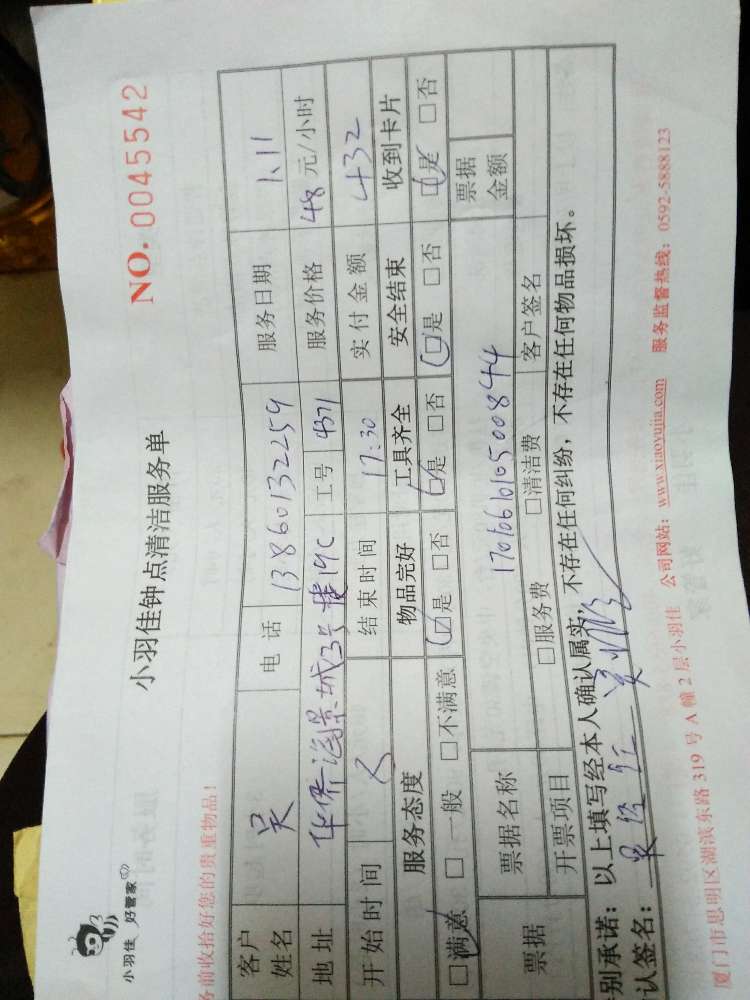 小羽佳 好管家
小羽佳钟点清洁服务单
NO. 0045542
务前收拾好您的贵重物品!
客户姓名 吴 电话 13860132259 服务日期 1.11
地址 华侨海景城3号楼19C 工号 4371 服务价格 48 元/小时
开始时间 结束时间 17:30 实付金额 432
服务态度 物品完好 工具齐全 安全结束 收到卡片
□满意 □一般 □不满意 □是 □否 □是 □否 □是 □否 □是 □否
票据 票据名称 170106101500844 票据金额
开票项目 □服务费 □清洁费 客户签名
别承诺: 以上填写经本人确认属实, 不存在任何纠纷, 不存在任何物品损坏。
认签名: 吴
厦门市思明区湖滨东路 319 号 A 幢 2 层小羽佳 公司网站: www.xiaoyujia.com 服务监督热线: 0592-5888123